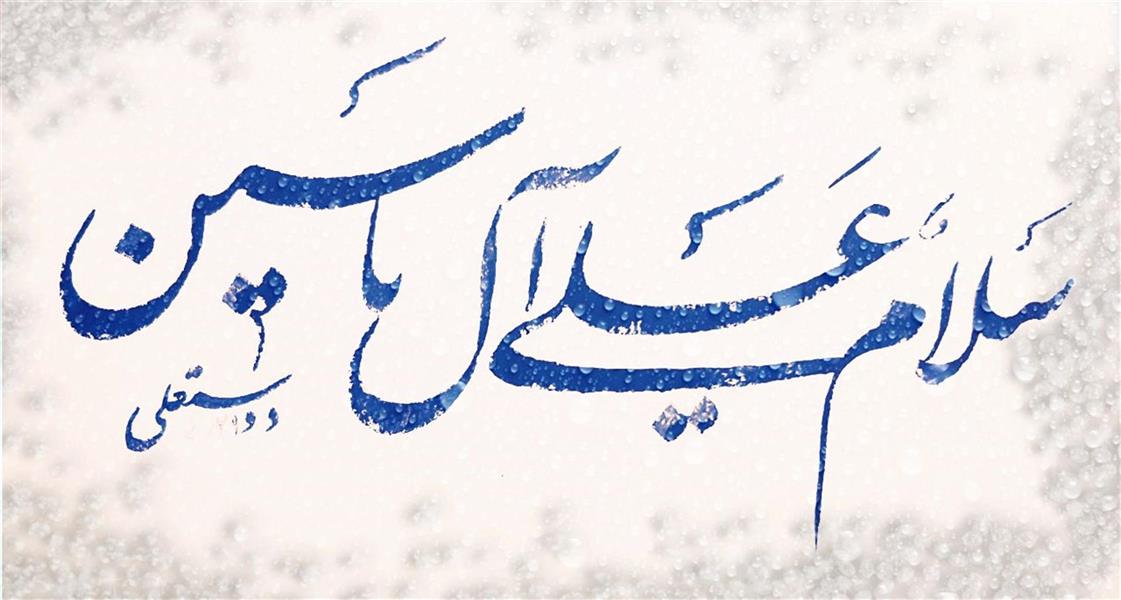 سَلامٌ عَلی آل یاسین
دوستعلی